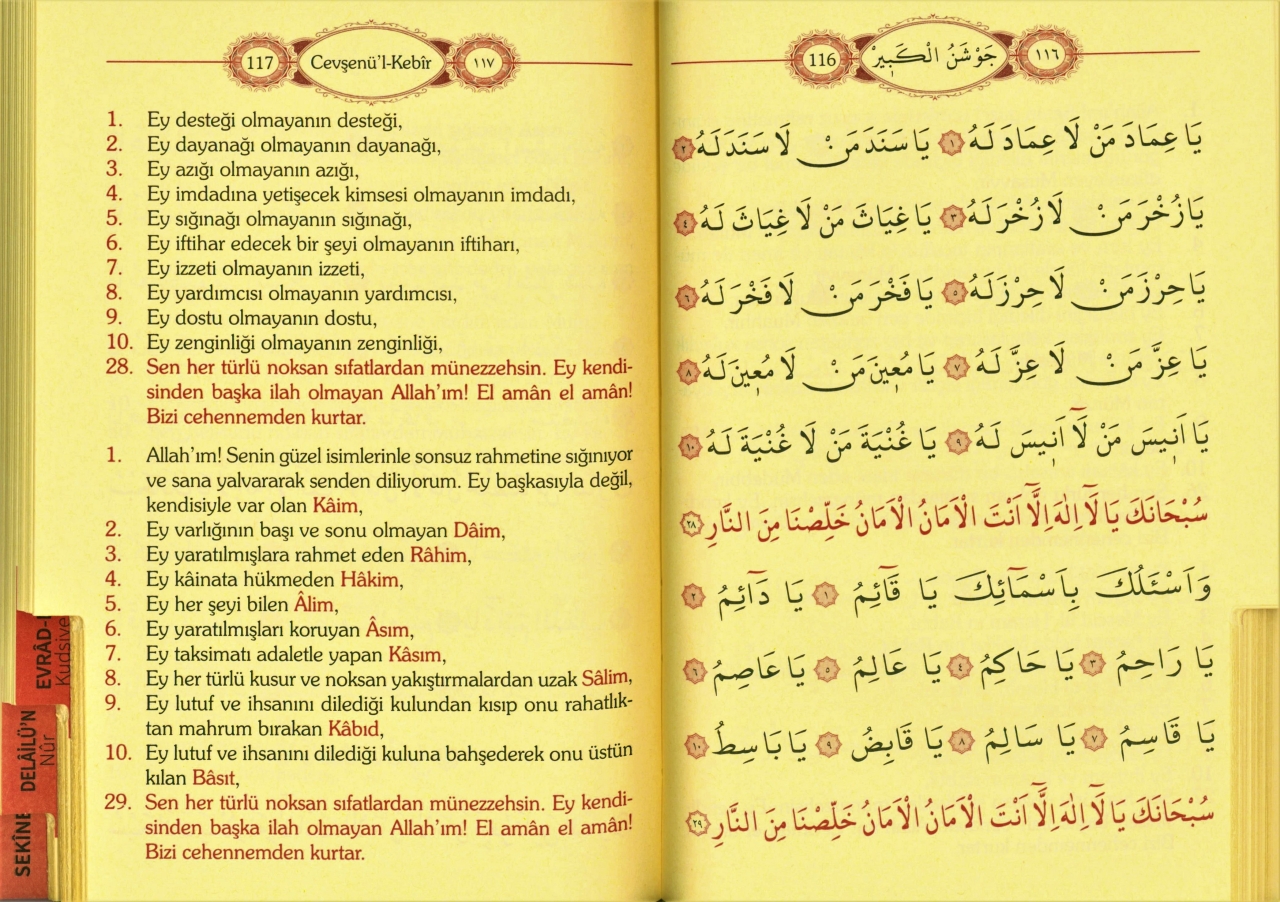 117 Cevşenü'l-Kebîr ١١٧
1. Ey desteği olmayanın desteği,
2. Ey dayanağı olmayanın dayanağı,
3. Ey azığı olmayanın azığı,
4. Ey imdadına yetişecek kimsesi olmayanın imdadı,
5. Ey sığınağı olmayanın sığınağı,
6. Ey iftihar edecek bir şeyi olmayanın iftiharı,
7. Ey izzeti olmayanın izzeti,
8. Ey yardımcısı olmayanın yardımcısı,
9. Ey dostu olmayanın dostu,
10. Ey zenginliği olmayanın zenginliği,
28. Sen her türlü noksan sıfatlardan münezzehsin. Ey kendi-
sinden başka ilah olmayan Allah'ım! El amân el amân!
Bizi cehennemden kurtar.
1. Allah'ım! Senin güzel isimlerinle sonsuz rahmetine sığınıyor
ve sana yalvararak senden diliyorum. Ey başkasıyla değil,
kendisiyle var olan Kâim,
2. Ey varlığının başı ve sonu olmayan Dâim,
3. Ey yaratılmışlara rahmet eden Râhim,
4. Ey kâinata hükmeden Hâkim,
5. Ey her şeyi bilen Âlim,
6. Ey yaratılmışları koruyan Âsım,
7. Ey taksimatı adaletle yapan Kâsım,
8. Ey her türlü kusur ve noksan yakıştırmalardan uzak Sâlim,
9. Ey lutuf ve ihsanını dilediği kulundan kısıp onu rahatlık-
tan mahrum bırakan Kâbıd,
10. Ey lutuf ve ihsanını dilediği kuluna bahşederek onu üstün
kılan Bâsıt,
29. Sen her türlü noksan sıfatlardan münezzehsin. Ey kendi-
sinden başka ilah olmayan Allah'ım! El amân el amân!
Bizi cehennemden kurtar.
EVRÂD-I
Kudsiye
DELÂİLÜ'N
Nûr
SEKÎNE
116 جَوْشَنُ الْكَبِيرْ ١١٦
يَا عِمَادَ مَنْ لَا عِمَادَ لَهُ ١ يَا سَنَدَ مَنْ لَا سَنَدَ لَهُ ٢
يَا زُخْرَ مَنْ لَا زُخْرَ لَهُ ٣ يَا غِيَاثَ مَنْ لَا غِيَاثَ لَهُ ٤
يَا حِرْزَ مَنْ لَا حِرْزَ لَهُ ٥ يَا فَخْرَ مَنْ لَا فَخْرَ لَهُ ٦
يَا عِزَّ مَنْ لَا عِزَّ لَهُ ٧ يَا مُعِينَ مَنْ لَا مُعِينَ لَهُ ٨
يَا اَنِيسَ مَنْ لَٓا اَنِيسَ لَهُ ٩ يَا غُنْيَةَ مَنْ لَا غُنْيَةَ لَهُ ١٠
سُبْحَانَكَ يَا لَٓا اِلٰهَ اِلَّٓا اَنْتَ الْاَمَانُ الْاَمَانُ خَلِّصْنَا مِنَ النَّارِ ٢٨
وَاَسْئَلُكَ بِاَسْمَٓائِكَ يَا قَٓائِمُ ١ يَا دَٓائِمُ ٢
يَا رَاحِمُ ٣ يَا حَاكِمُ ٤ يَا عَالِمُ ٥ يَا عَاصِمُ ٦
يَا قَاسِمُ ٧ يَا سَالِمُ ٨ يَا قَابِضُ ٩ يَا بَاسِطُ ١٠
سُبْحَانَكَ يَا لَٓا اِلٰهَ اِلَّٓا اَنْتَ الْاَمَانُ الْاَمَانُ خَلِّصْنَا مِنَ النَّارِ ٢٩